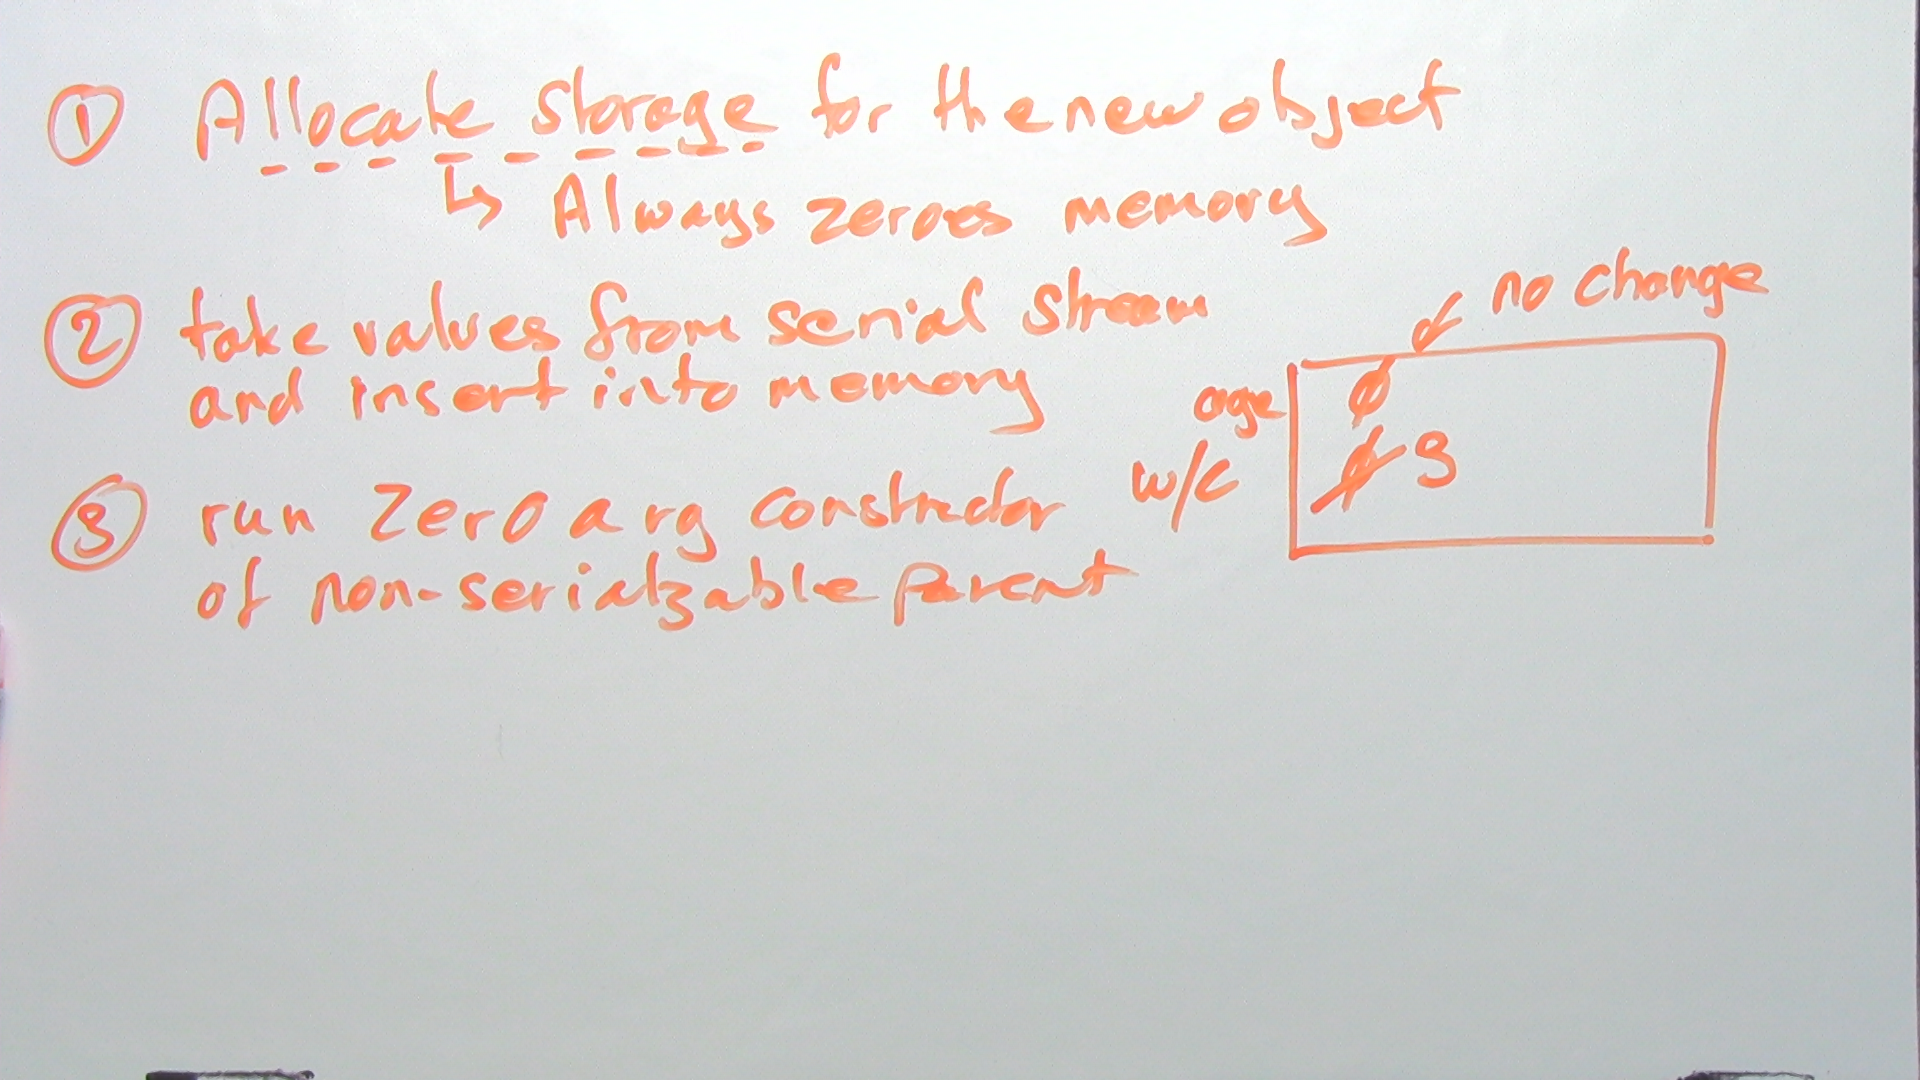 ① Allocate storage for the new object
↳ Always zeroes memory
② take values from serial stream
and insert into memory
③ run zero arg constructor
of non-serialzable parent
no change
age 0
w/c 0 3